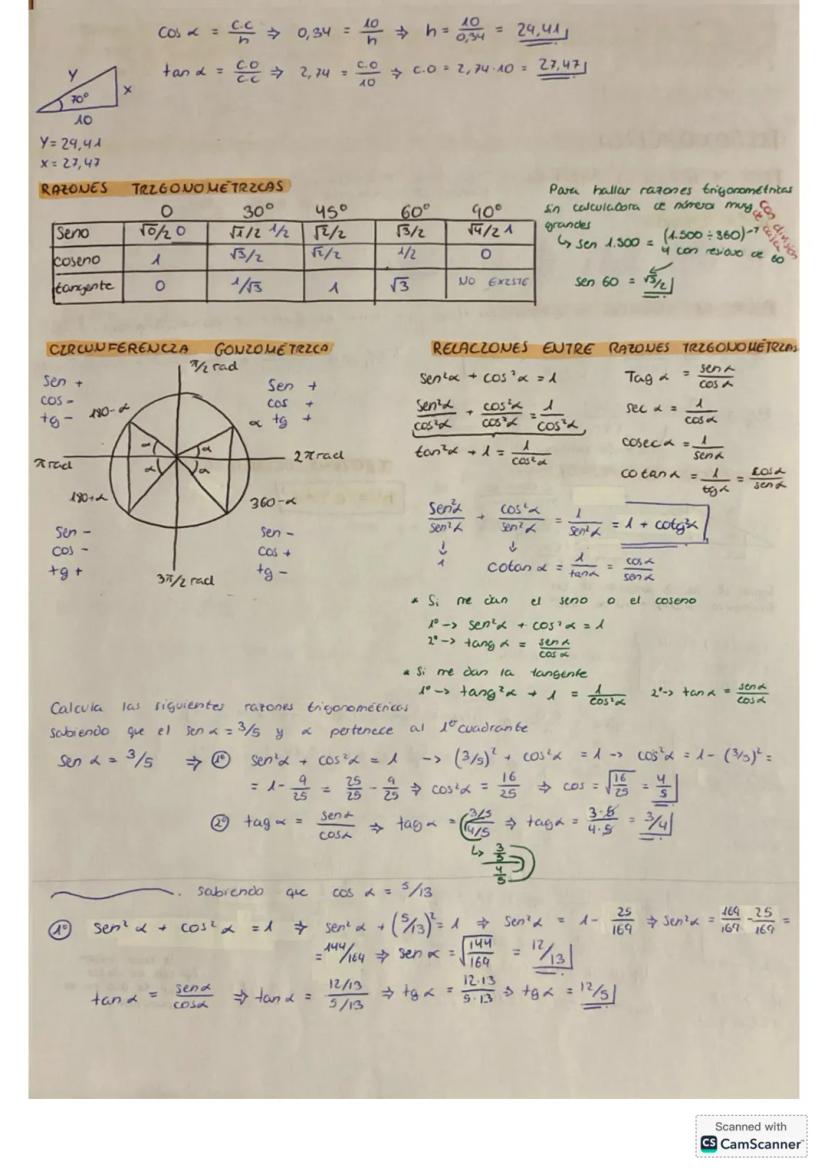 cos α = c.c/h ⇒ 0,34 = 10/h ⇒ h = 10/0,34 = 29,41
tan α = c.o/c.c ⇒ 2,74 = c.o/10 ⇒ c.o = 2,74·10 = 27,47
y
x
70°
10
y = 29,41
x = 27,47
RAZONES TRIGONOMÉTRICAS
0 30° 45° 60° 90°
Seno √0/2 0 √1/2 1/2 √2/2 √3/2 √4/2 1
coseno 1 √3/2 √2/2 1/2 0
tangente 0 1/√3 1 √3 NO EXISTE
Para hallar razones trigonométricas
sin calculadora de números muy
grandes
↳ sen 1.500 = (1.500 ÷ 360) →
4 con residuo de 60
sen 60 = √3/2
CIRCUNFERENCIA GONIOMÉTRICA
π/2 rad
Sen +
cos -
tg -
180-α
Sen +
cos +
tg +
α
α
α
α
α
π rad
2π rad
180+α
360-α
Sen -
cos -
tg +
Sen -
cos +
tg -
3π/2 rad
RELACIONES ENTRE RAZONES TRIGONOMÉTRICAS
sen²α + cos²α = 1
Tag α = sen α/cos α
sen²α/cos²α + cos²α/cos²α = 1/cos²α
sec α = 1/cos α
tan²α + 1 = 1/cos²α
cosec α = 1/sen α
cotan α = 1/tg α = cos α/sen α
sen²α/sen²α + cos²α/sen²α = 1/sen²α = 1 + cotg²α
↓ ↓
1 cotan α = 1/tan α = cos α/sen α
* Si me dan el seno o el coseno
1º -> sen²α + cos²α = 1
2º -> tang α = sen α/cos α
* Si me dan la tangente
1º -> tang²α + 1 = 1/cos²α 2º -> tan α = sen α/cos α
Calcula las siguientes razones trigonométricas
sabiendo que el sen α = 3/5 y α pertenece al 1er cuadrante
Sen α = 3/5 ⇒ 1º sen²α + cos²α = 1 -> (3/5)² + cos²α = 1 -> cos²α = 1 - (3/5)² =
= 1 - 9/25 = 25/25 - 9/25 ⇒ cos²α = 16/25 ⇒ cos = √16/25 = 4/5
2º tag α = sen α/cos α ⇒ tag α = (3/5)/(4/5) ⇒ tag α = 3·5/4·5 = 3/4
↳ 3/5
4/5
. sabiendo que cos α = 5/13
1º sen²α + cos²α = 1 ⇒ sen²α + (5/13)² = 1 ⇒ sen²α = 1 - 25/169 ⇒ sen²α = 169/169 - 25/169 =
= 144/169 ⇒ sen α = √144/169 = 12/13
tan α = sen α/cos α ⇒ tan α = (12/13)/(5/13) ⇒ tg α = 12·13/5·13 ⇒ tg α = 12/5
Scanned with
CS CamScanner